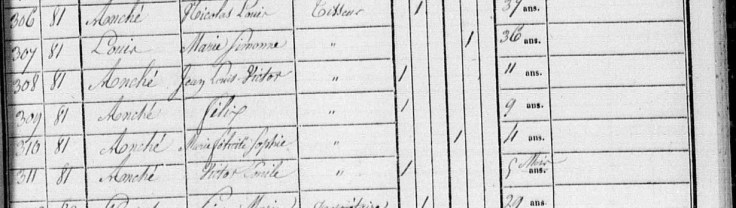 306 81 Anché Nicolas Louis Tisseur 1 37 ans.
307 81 Louis Marie Simonne " 1 36 ans.
308 81 Anché Jean Louis Victor " 1 11 ans.
309 81 Anché Félix " 1 9 ans.
310 81 Anché Marie Sophie " 1 ans.
311 81 Anché Victor Emile " 1 5 Mois ans.
Marie 1 29 ans.